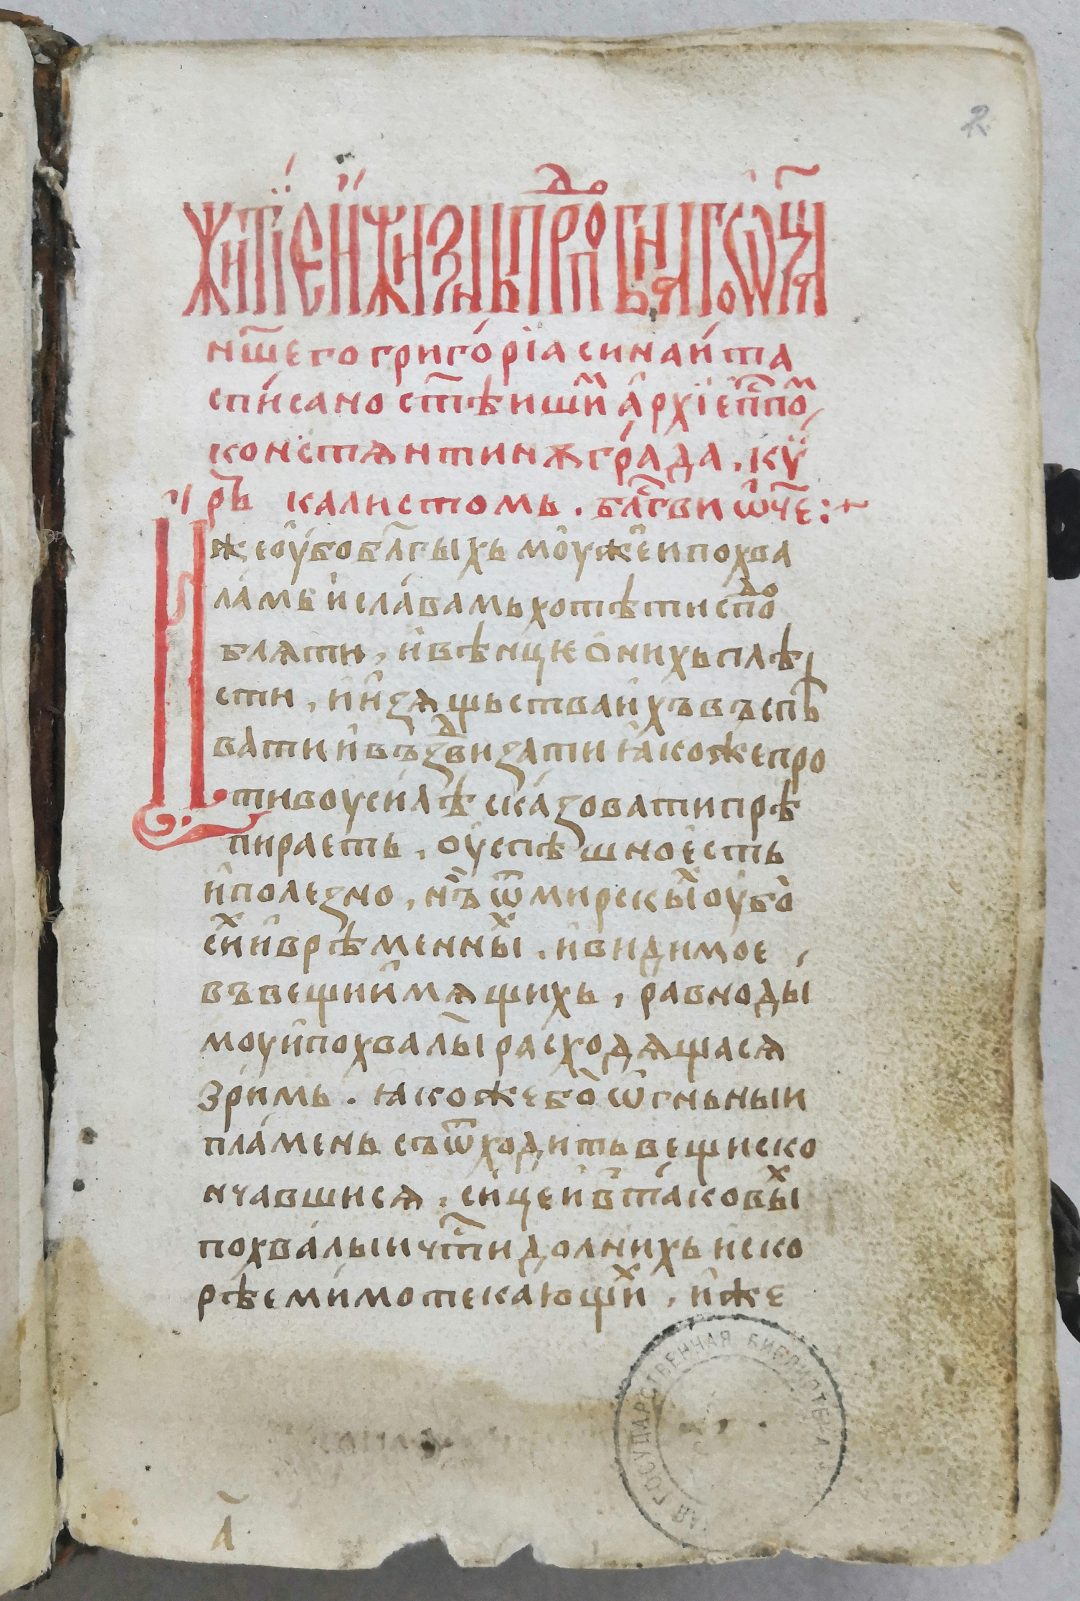 2
житїе и жизнь прпⷣобнаго ѿца
нш҃его григо́рїа синаи́та
спи́сано ст҃ѣишиⷨ а҆рхїеп҃поⷨ,
конⸯстѧнтинѫгра́да. кѵ́
рь калистомь. блⷭ҇ви ѡ҆ч҃е:~
И҆же оу҆бо бл҃гыхь моу҆же́и похва
ла́мь и҆ сла́вамь хотѣти споⷣо
блѧти, и҆ вѣнцꙗ о҆ нихь плѣ
сти, и҆ и҆зѧщьства и҆хъ въспѣ
вати и҆ въⷣзвизати ꙗкоже про
тивоу си́лѣ ска́зовати прѣ
пираеть. оу҆спѣшно е҆сть
и҆ полезно, нъ̀ ѿ мирскыⷯ оу҆бо̀
сиⷯ и҆ врѣменныⷯ. и҆ видимое,
въ вещи и҆мѧщихь, равно ды
моу и҆ похвалы̀ расходѧщасѧ
зри́мь. ꙗкоже бо̀ ѡ҆гньныи
пла́мень съѿходить вещи ско
нчавшисѧ. си́це и҆ в҆ та́ковыⷯ
похва́лы и чⷭ҇ти долнихь и ско
рѣе ми́мотекающиⷯ, и҆же
АЯ ГОСУДАРСТВЕННАЯ БИБЛИОТЕКА
л҃